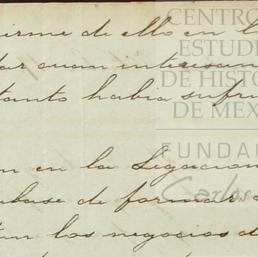 irme de ello en l
dar cuan interesan
tanto habia sufri
en en la Legacion
base de formar
tan los negocios d
CENTRO
ESTUDI
DE HISTO
DE MEX
FUNDA
Carlos